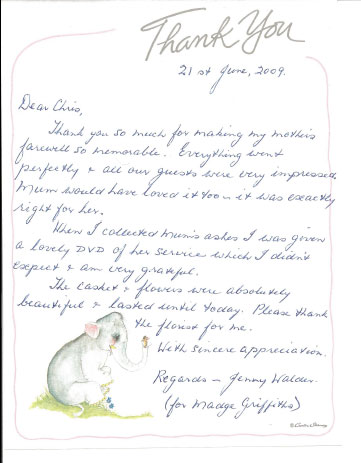 Thank You
21st June, 2009.
Dear Chris,
Thank you so much for making my mothers
farewell so memorable. Everything went
perfectly & all our guests were very impressed
Mum would have loved it too - it was exactly
right for her.
When I collected Mum's ashes I was given
a lovely DVD of her service which I didn't
expect & am very grateful.
The casket & flowers were absolutely
beautiful & lasted until today. Please thank
the florist for me.
With sincere appreciation.
Regards - Jenny Walder.
(for Madge Griffiths)